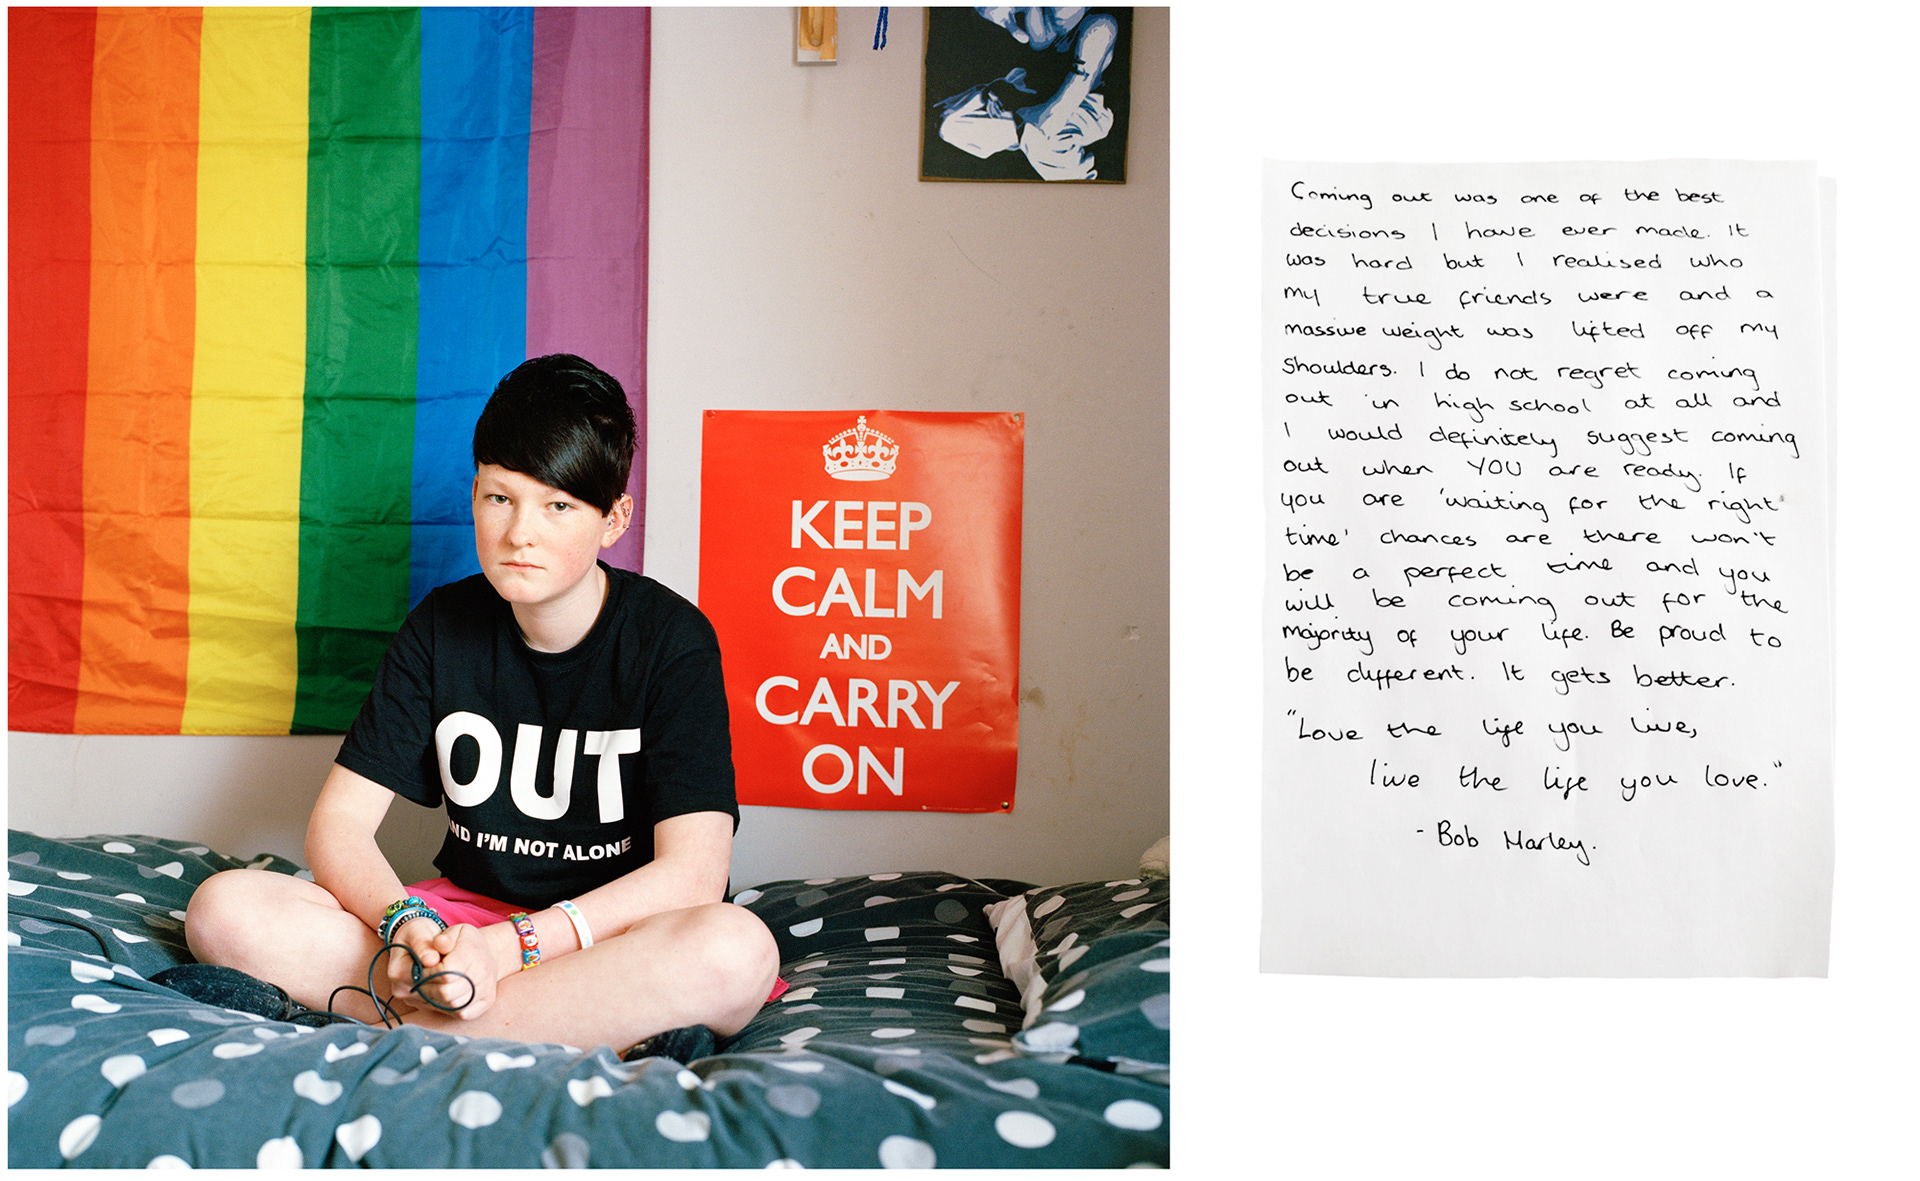 KEEP
CALM
AND
CARRY
ON
OUT
AND I'M NOT ALONE
Coming out was one of the best
decisions I have ever made. It
was hard but I realised who
my true friends were and a
massive weight was lifted off my
shoulders. I do not regret coming
out in high school at all and
I would definitely suggest coming
out when YOU are ready. If
you are 'waiting for the right
time' chances are there won't
be a perfect time and you
will be coming out for the
majority of your life. Be proud to
be different. It gets better.
"Love the life you live,
live the life you love."
- Bob Marley.